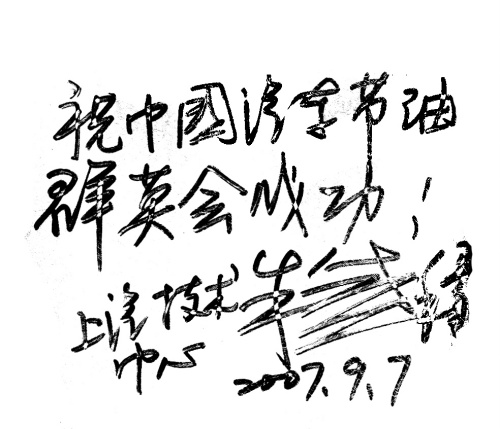 祝中國汽车节油
群英会成功！
上汽技术
中心
2007.9.7